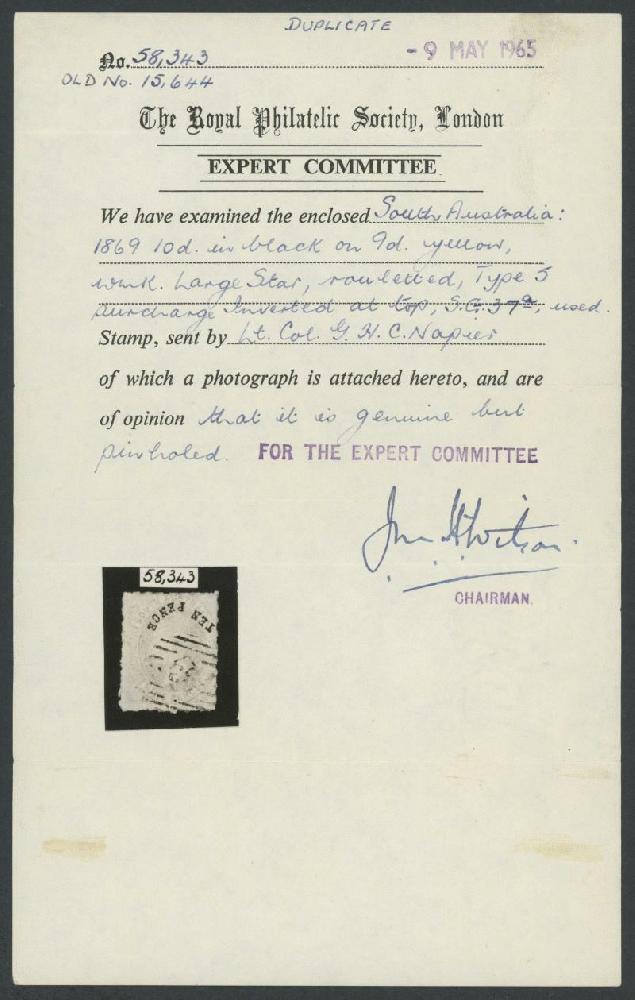 DUPLICATE
No. 58,343 - 9 MAY 1965
OLD No. 15,644
The Royal Philatelic Society, London
EXPERT COMMITTEE
We have examined the enclosed South Australia:
1869 10d. in black on 9d. yellow,
wmk. Large Star, rouletted, Type 5
surcharge Inverted at top, S.G. 37a, used.
Stamp, sent by Lt. Col. G. H. C. Napier
of which a photograph is attached hereto, and are
of opinion that it is genuine but
pinholed. FOR THE EXPERT COMMITTEE
CHAIRMAN.
58,343
TEN PENCE